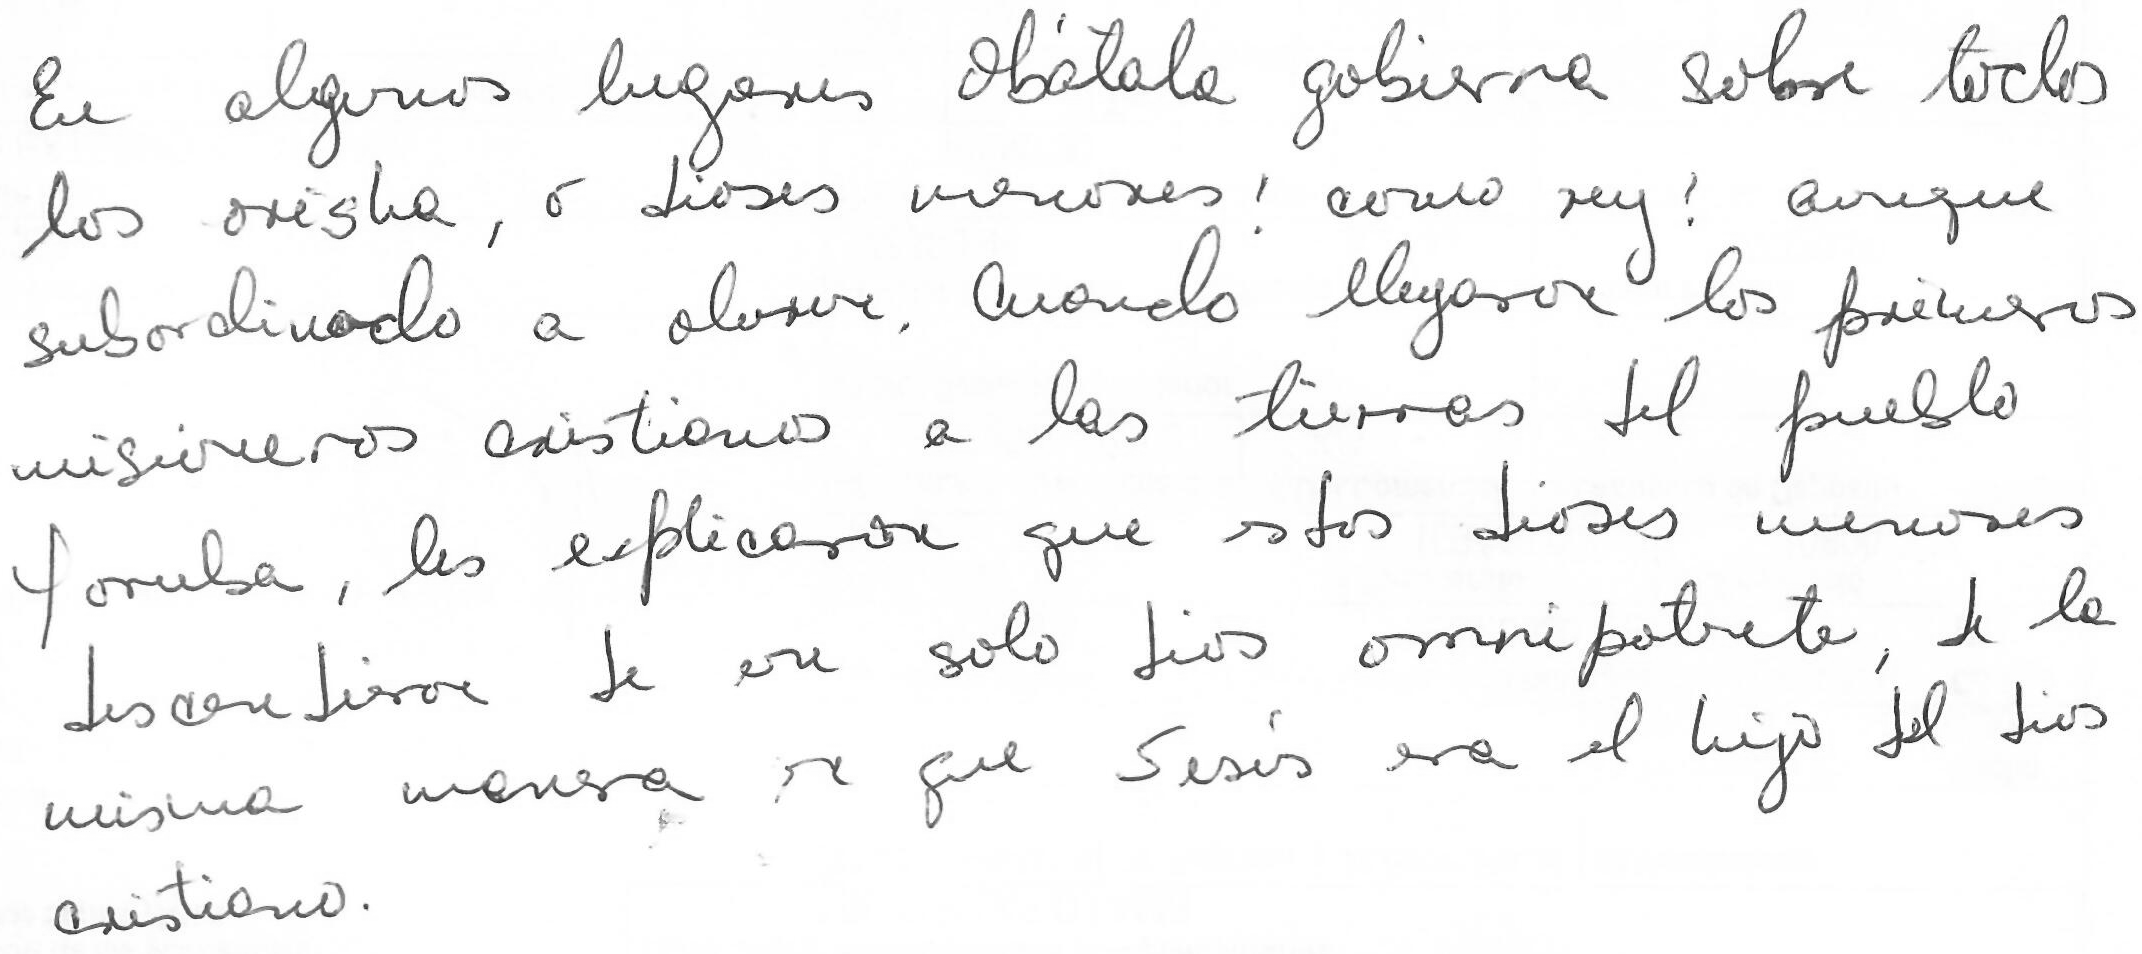 En algunos lugares Obátala gobierna sobre todos
los orisha, o dioses menores! como rey! aunque
subordinado a olorun. Cuando llegaron los primeros
misioneros cristianos a las tierras del pueblo
Yoruba, les explicaron que estos dioses menores
descendieron de un solo dios omnipotente, de la
misma manera en que Jesús era el hijo del dios
cristiano.